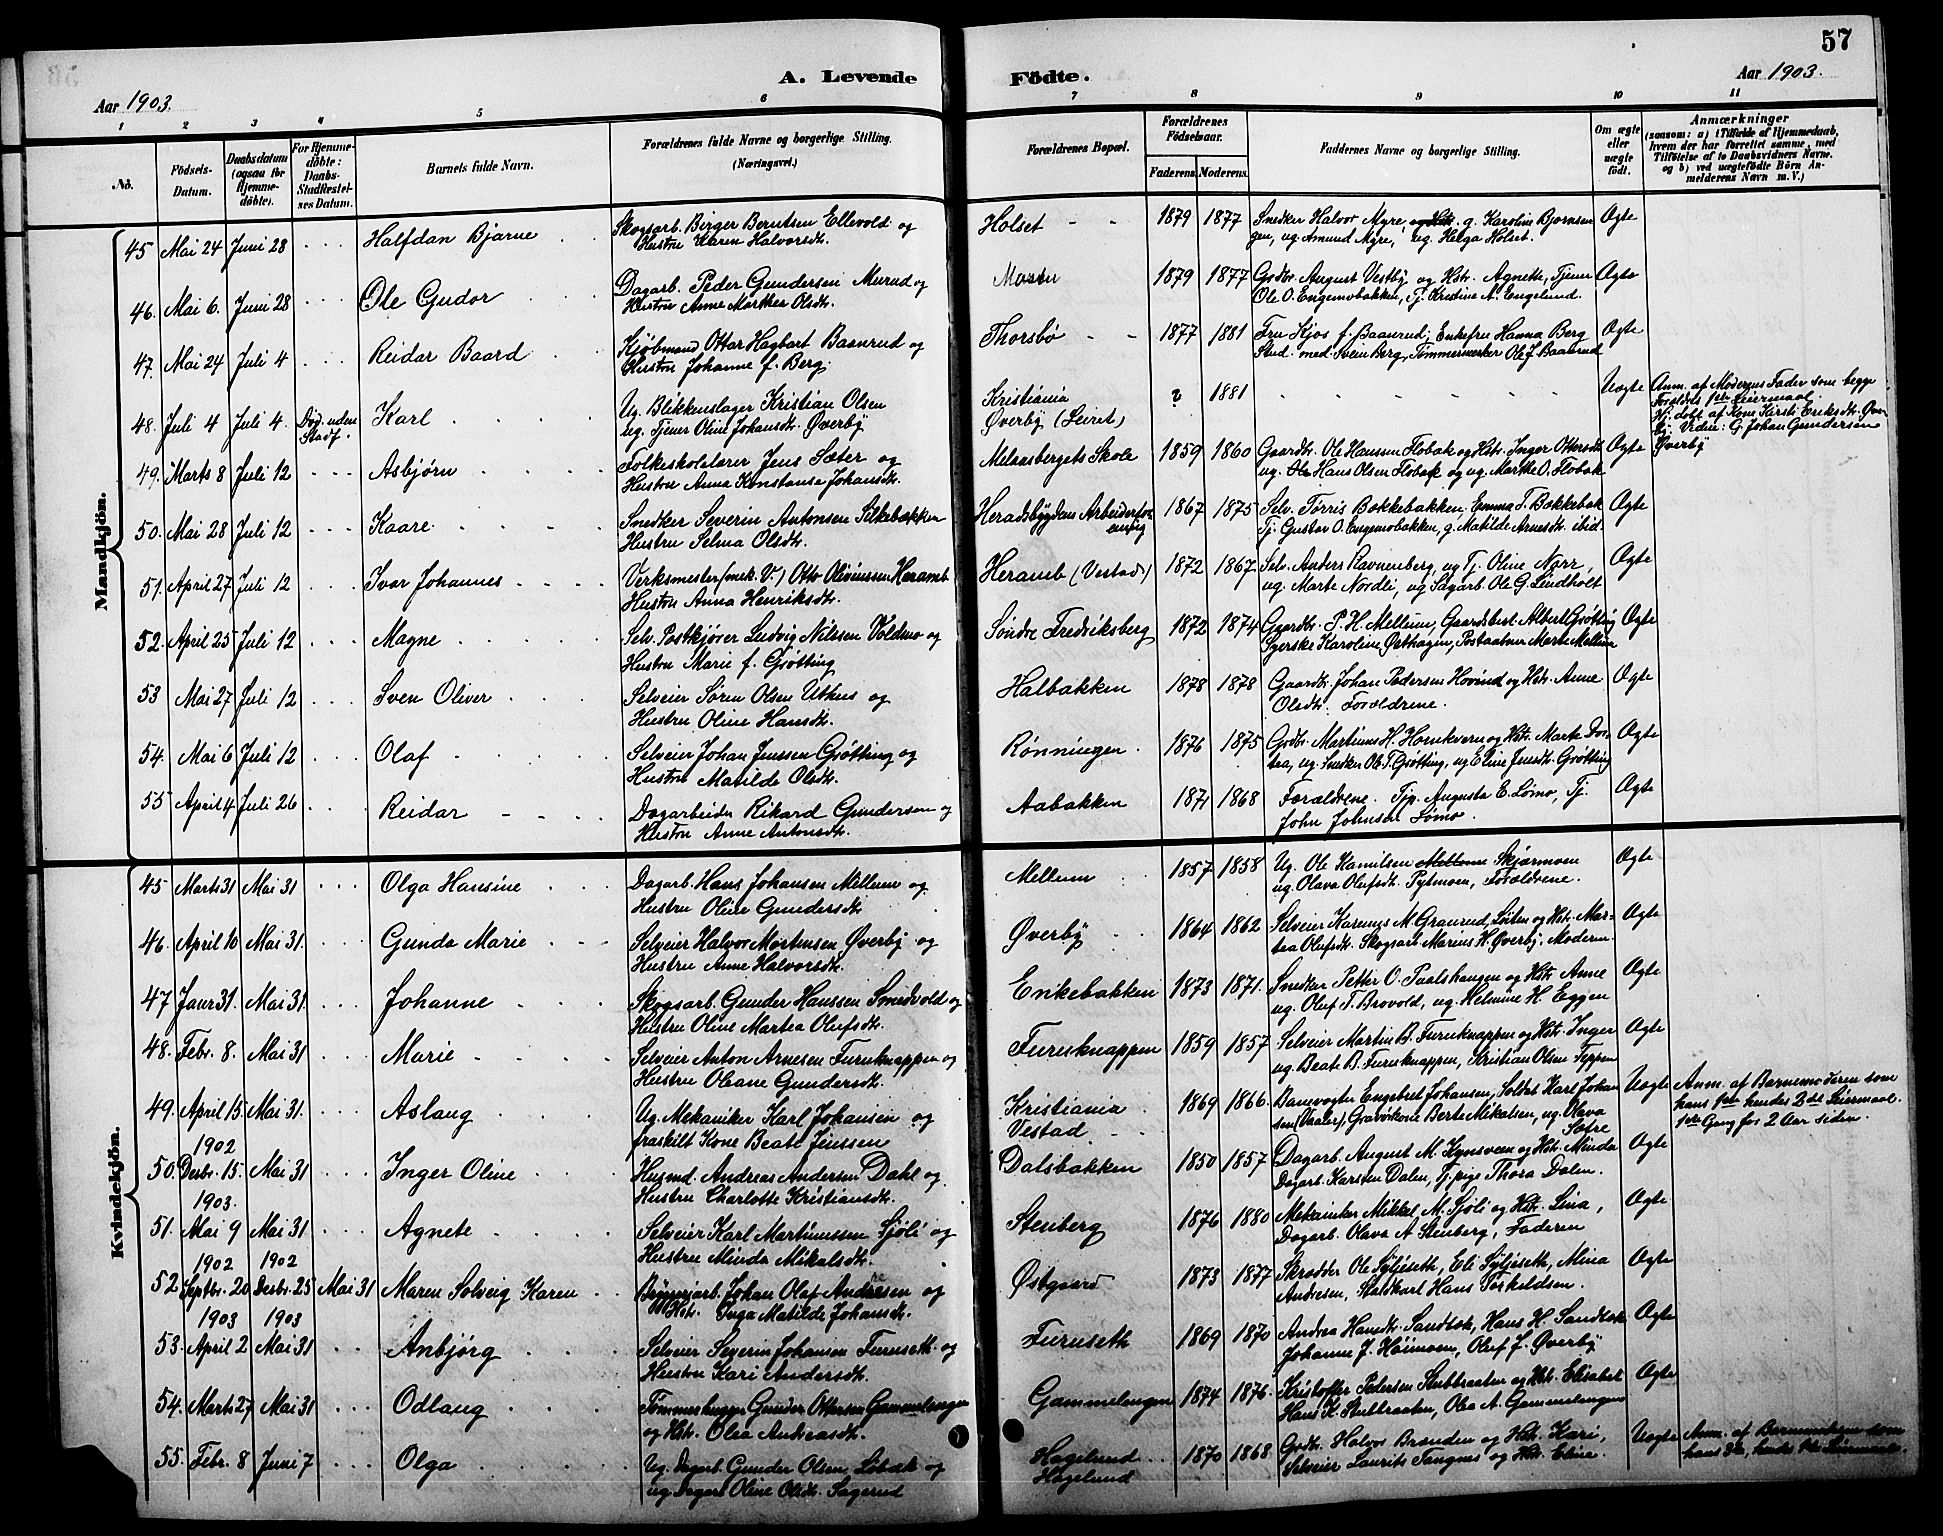 57
A. Levende Födte.
Aar 1903. Aar 1903.
1 2 3 4 5 6 7 8 9 10 11
No. Födsels-Datum. Daabsdatum (ogsaa for Hjemme-döbte). For Hjemme-döbte: Daabs-Stadfæstel-ses Datum. Barnets fulde Navn. Forældrenes fulde Navne og borgerlige Stilling. (Næringsvei.) Forældrenes Bopæl. Forældrenes Födselsaar. Faderens. Moderens. Faddernes Navne og borgerlige Stilling. Om ægte eller uægte födt. Anmærkninger (saasom: a) i Tilfælde af Hjemmedaab, hvem der har forrettet samme, med Tilföielse af to Daabsvidners Navne. og b) ved uægtefödte Börn An-melderens Navn m. V.)
Mandkjön.
45 Mai 24 Juni 28 Halfdan Bjarne Skogsarb. Birger Berntsen Ellevold og Holset 1879 1877 Snedker Halvor Myre, g. Karoline Bjørnsen Ægte
Hustru Karen Halvorsdt. gen, ug. Amund Myre, ug. Helga Holset.
46. Mai 6. Juni 28 Ole Gudor Dagarb. Peder Gundersen Murud og 1879 1877 Grdbr. August Vestby og Hstr. Agnette, Tjener Ægte
Hustru Anne Marthea Olsdt. Ole O. Engemobakken, Tj. Kristine A. Engelund.
47. Mai 24 Juli 4 Reidar Baard Kjøbmand Ottar Hagbart Baanrud og Thorsbø 1877 1881 Fru Kjos f. Baanrud, Enkefru Hanna Berg Ægte
Hustru Johanne f. Berg. Stud. med. Svein Berg, Tømmermerker Olaf Baanrud
48. Juli 4 Juli 4. Død uden Stadf. Karl Ug. Blikkenslager Kristian Olsen Kristiania ? 1881 Uægte Anm. af Moderens Fader som begge
ug. Tjener Oline Johansdt. Øverby Øverby (Leiret) Forældres 1ste Leiermaal.
Hj. døbt af Kone Kirsti Eriksdt. Øver
by. Vidne: G. Johan Gundersen
Øverby
49. Marts 8 Juli 12 Asbjørn Folkeskolelærer Jens Sæter og Melaasbergets Skole 1859 1860 Gaardbr. Ole Hansen Flobak og Hstr. Inger Ottersdt. Ægte
Hustru Anna Konstanse Johansdt. ug. Hans Olsen Flobak og ug. Marthe O. Flobak
50. Mai 28 Juli 12 Kaare Snedker Severin Antonsen Silkebækken Heradsbygdens Arbeiderfor 1867 1875 Selv. Torris Bekkebakken. Emma T. Bækkebak Ægte
Hustru Selma Olsdt. ening Tj. Gustav O. Engemobakken, g. Matilde Arnesdt. ibid.
51. April 27 Juli 12 Ivar Johannes Verksmester (mek. V.) Otto Oliverssen Heramb Heramb (Vestad) 1872 1867 Selv. Anders Ravneberg, ug Tj. Oline Nørr, Ægte
Hustru Anna Henriksdt. ug. Marte Nordli, ug Sagarb. Ole G. Lindholt
52. April 25 Juli 12 Magne Selv. Postkjører Ludvig Nilssen Voldmo og Søndre Fredriksberg 1872 1874 Gaardbr. P. H. Mellum, Gaardsbest. Albert Grøtting Ægte
Hustru Marie f. Grøtting Syerske Karoline Østhagen, Postaabner Marte Mellum
53 Mai 27 Juli 12 Sven Oliver Selveier Søren Olsen Uthus og Halbakken 1878 1878 Gaardbr. Johan Pedersen Hovind og Hstr. Anne Ægte
Hustru Oline Hansdt. Olsdt. Forældrene.
54. Mai 6 Juli 12 Olaf Selveier Johan Jenssen Grøtting og Rønningen 1876 1875 Grdbr. Martinus H. Hornkvern og Hstr. Marte Dor- Ægte
Hustru Matilde Olsdt. tea, ug. Snedker Ole T. Grøtting, ug Eline Jensdt. Grøtting
55 April 4 Juli 26 Reidar Dagarbeider Rikard Gundersen og Aabakken 1871 1868 Forældrene. Tjp. Augusta E. Lømo, Tj. Ægte
Hustru Anne Antonsdt. John Johnsen Lømo.
Kvindekjön.
45 Marts 31 Mai 31 Olga Hansine Dagarb. Hans Johansen Mellum og Mellum 1857 1858 Ug. Ole Kamilsen Mellum Skjærmoen Ægte
Hustru Oline Gundersdt. ug. Olava Olufsdt. Pytmoen, Forældrene.
46. April 10 Mai 31. Gunda Marie Selveier Halvor Mortensen Øverby og Øverby 1864 1862 Selveier Karenus M. Granrud, Løiten og Hstr. Mar- Ægte
Hustru Anne Halvorsdt. tea Olufsdt. Skogsarb. Marius H. Øverby, Moderen
47 Janr 31. Mai 31. Johanne Skogsarb. Gunder Hanssen Smedvold og Enkebakken 1873 1871. Snedker Petter O. Paalshaugen og Hstr. Anne Ægte
Hustru Oline Martea Olufsdt. ug. Oluf T. Brovold, ug. Helmine H. Eggen
48. Febr. 8. Mai 31 Marie Selveier Anton Arnesen Furuknappen og Furuknappen 1859 1857 Selveier Martin B. Furuknappen og Hstr. Inger Ægte
Hustru Oleane Gundersdt. ug. Beate B. Furuknappen, Kristian Olsen Teppen
49. April 15 Mai 31. Aslaug Ug. Mekaniker Karl Johansen og Kristiania 1869 1866. Banevogter Engebret Johansen, Soldat Karl Johan Uægte Anm. af Barnemoderen som
fraskilt Kone Beate Jenssen Vestad sen (Vaaler), Gravkone Berte Mikalsen, ug. Olava Sætre hans 1ste hendes 3die Leiermaal.
1ste Gang for 2 Aar siden.
1902
50. Decbr. 15. Mai 31 Inger Oline Husmd. Andreas Andersen Dahl og Dalsbakken 1850 1857 Dagarb. August M. Kynsveen og Hstr. Minda Ægte
Hustru Charlotte Kristiansdt. Dagarb. Karsten Dalen, Tj.pige Thora Dalen.
1903.
51. Mai 9 Mai 31 Agnete Selveier Karl Martinussen Sjøli og Stenberg 1876 1880 Mekaniker Mikkel M. Sjøli og Hstr. Lina, Ægte
Hustru Minda Mikalsdt. Dagarb. Olava A Stenberg, Faderen
1902 1902
52 Septbr. 20 Decbr. 25 Mai 31 Maren Solveig Karen Johan Olaf Andresen og Østgaard 1873 1877 Skrædder Ole Syljeseth, Eli Syljeseth, Mina Ægte
Hstr. Inga Matilde Johansdt. Andresen, Staldkarl Hans Torkildsen.
1903 1903
53. April 2 Mai 31 Anbjørg Selveier Severin Johansen Furuseth og Furuseth 1869 1870 Andrea Hansdt. Sandbak, Hans H. Sandbak Ægte
Hustru Kari Andersdt. Johanne J. Høimoen, Oluf J. Øverby
54. Marts 27 Mai 31 Odlaug Tømmerhugger Gunder Ottersen Gammelengen Gammelengen 1874 1876. Kristoffer Pedersen Stubbraaten og Hstr. Elisabet Ægte
og Hstr. Olea Andreasdt. Hans K. Stubbraaten, Olea A. Gammelengen
55. Febr. 8 Juni 7 Olga Ug. Dagarb. Gunder Olsen Løbak og Hagelund 1870 1868. Grdbr. Halvor Brænden og Hstr. Kari, Uægte Anm. af Barnemoderen som
ug. Dagarb. Oline Olsdt. Sagerud Hagelund Selveier Laurits Tangnes og Hstr. Eline. hans 3die, hendes 1ste Leiermaal.